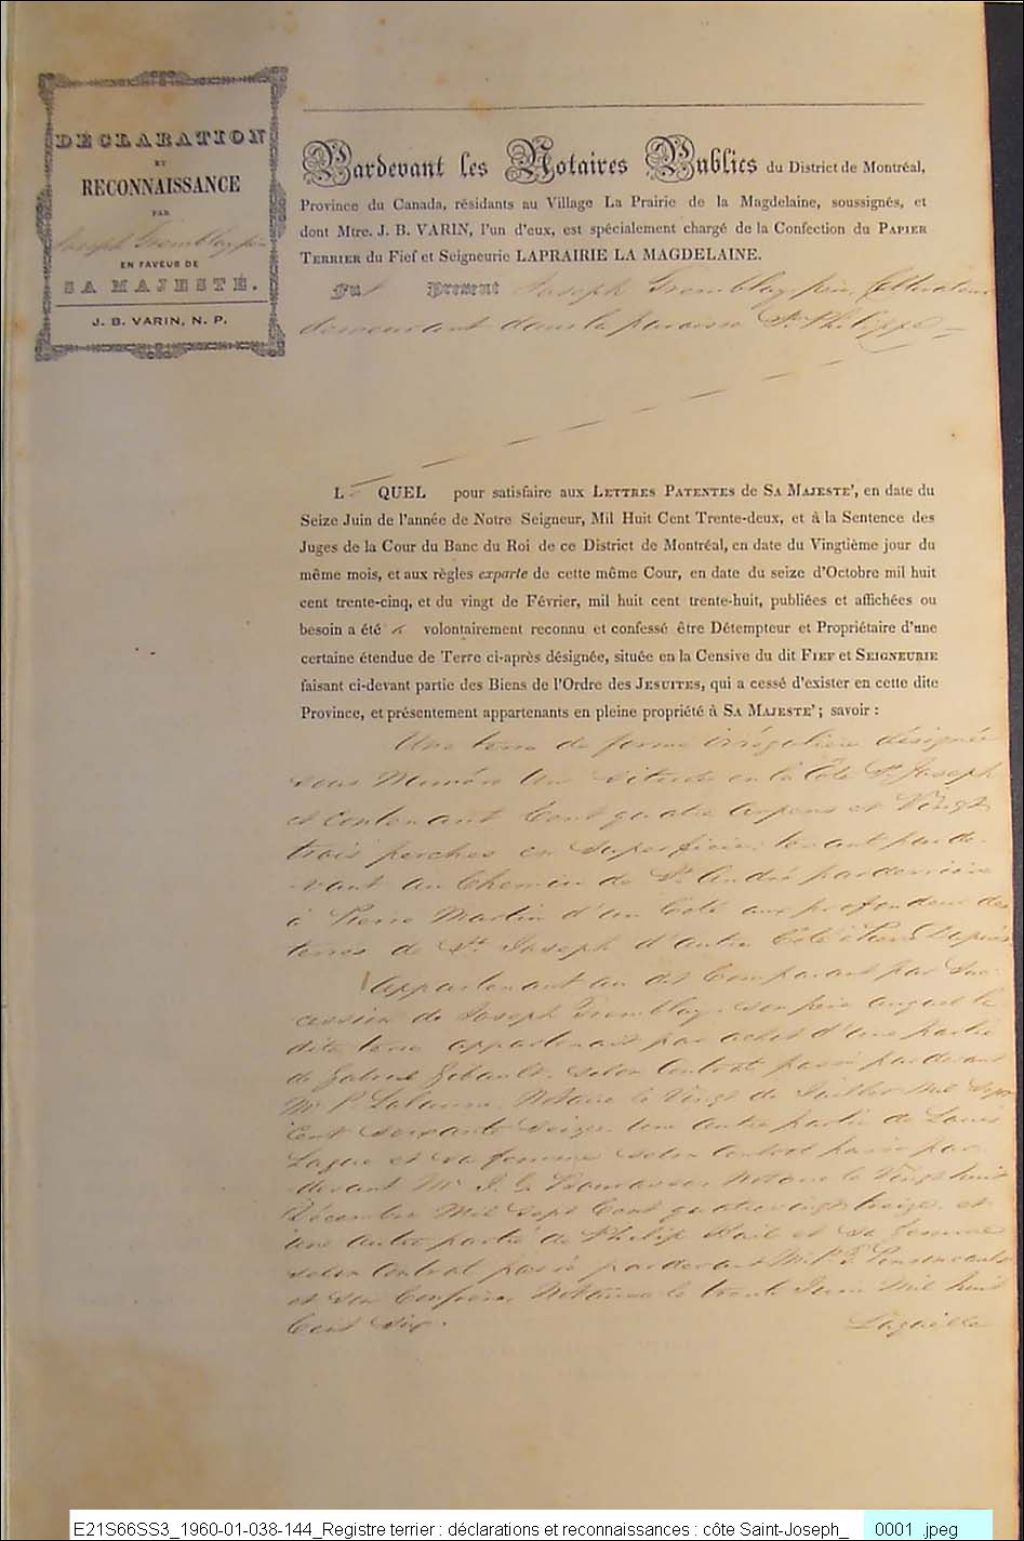 DÉCLARATION
ET
RECONNAISSANCE
PAR
Joseph Tremblay père
EN FAVEUR DE
SA MAJESTÉ.
J. B. VARIN, N. P.
Pardevant les Notaires Publics du District de Montréal,
Province du Canada, résidants au Village La Prairie de la Magdelaine, soussignés, et
dont Mtre. J. B. VARIN, l'un d'eux, est spécialement chargé de la Confection du PAPIER
TERRIER du Fief et Seigneurie LAPRAIRIE LA MAGDELAINE.
Fut Present Joseph Tremblay père Cultivateur
demeurant dans la paroisse St. Philippe
LE QUEL pour satisfaire aux LETTRES PATENTES de SA MAJESTE', en date du
Seize Juin de l'année de Notre Seigneur, Mil Huit Cent Trente-deux, et à la Sentence des
Juges de la Cour du Banc du Roi de ce District de Montréal, en date du Vingtième jour du
même mois, et aux règles exparte de cette même Cour, en date du seize d'Octobre mil huit
cent trente-cinq, et du vingt de Février, mil huit cent trente-huit, publiées et affichées ou
besoin a été a volontairement reconnu et confessé être Détempteur et Propriétaire d'une
certaine étendue de Terre ci-après désignée, située en la Censive du dit FIEF et SEIGNEURIE
faisant ci-devant partie des Biens de l'Ordre des JESUITES, qui a cessé d'exister en cette dite
Province, et présentement appartenants en pleine propriété à SA MAJESTE' ; savoir :
Une terre de forme irrégulière désignée
sous Numéro Un située en la Côte St. Joseph
et Contenant Cent quatre arpens et Vingt
trois perches en superficie, tenant parde-
vant au Chemin de St. André parderrière
à Pierre Martin d'un Coté aux profondeur des
terres de St. Joseph d'autre Côté à
Appartenant au dit Comparant par Suc-
cession de Joseph Tremblay, son père auquel la
dite terre appartenait par achat d'une partie
de Gabriel Gibault selon Contrat passé pardevant
Mr. P. Lalanne, Notaire le Vingt de Juillet Mil Sept
Cent Soixante Seize. Une autre partie de Louis
et sa femme selon Contrat passé par
devant Mr. Notaire le Vingt huit
Décembre Mil Sept Cent quatre vingt treize, et
une autre partie de Philip et sa femme
selon Contrat passé pardevant Mr.
et Son Confrère Notaires le trente Juin Mil huit
Cent Six. Laquelle
E21S66SS3_1960-01-038-144_Registre terrier : déclarations et reconnaissances : côte Saint-Joseph_ 0001 .jpeg